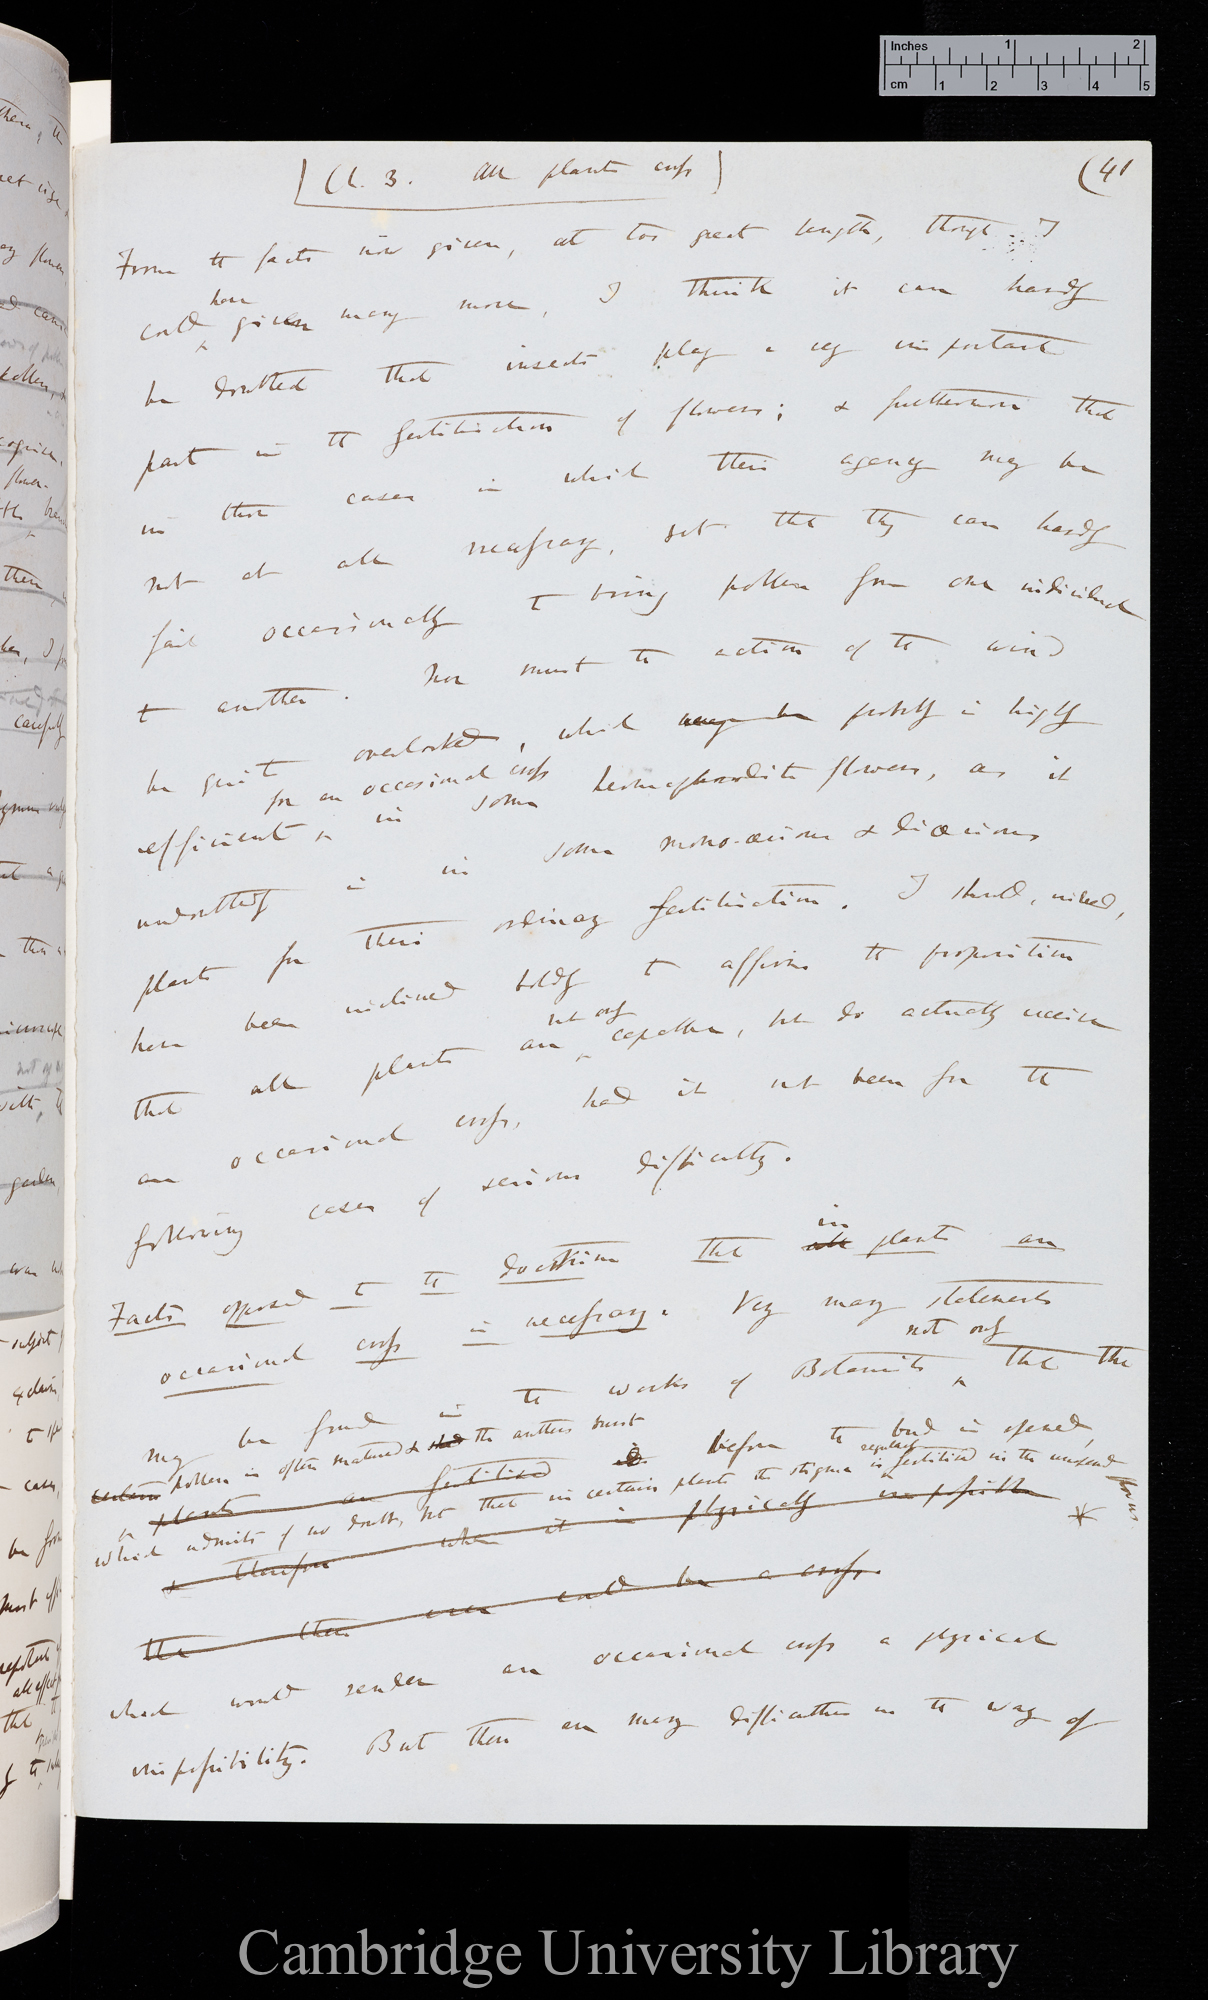 Ch. 3. All plants cross
(41
From the facts now given, at too great length, though I
could have given many more, I think it can hardly
be doubted that insects play a very important
part in the fertilisation of flowers; & furthermore that
in those cases in which their agency may be
not at all necessary, yet that they can hardly
fail occasionally to bring pollen from one individual
to another. Nor must the action of the wind
be quite overlooked, which may be probably is highly
efficient for an occasional cross in some hermaphrodite flowers, as it
undoubtedly is in some monoecious & dioecious
plants for their ordinary fertilisation. I should, indeed,
have been inclined boldly to affirm the proposition
that all plants are not only capable, but do actually receive
an occasional cross, had it not been for the
following cases of serious difficulty.
Facts opposed to the doctrine that all in plants an
occasional cross is necessary. Very many statements
may be found in the works of Botanists not only that the
certain pollen is often matured & shed the anthers burst
plants are fertilised before the bud is opened,
which admits of no doubt, but that in certain plants the stigma is regularly fertilised in the unopened flowers
& therefore when it is physically impossible
that there ever could be a cross.
which would render an occasional cross a physical
impossibility. But there are many difficulties in the way of
Inches
1
2
cm
1
2
3
4
5
Cambridge University Library